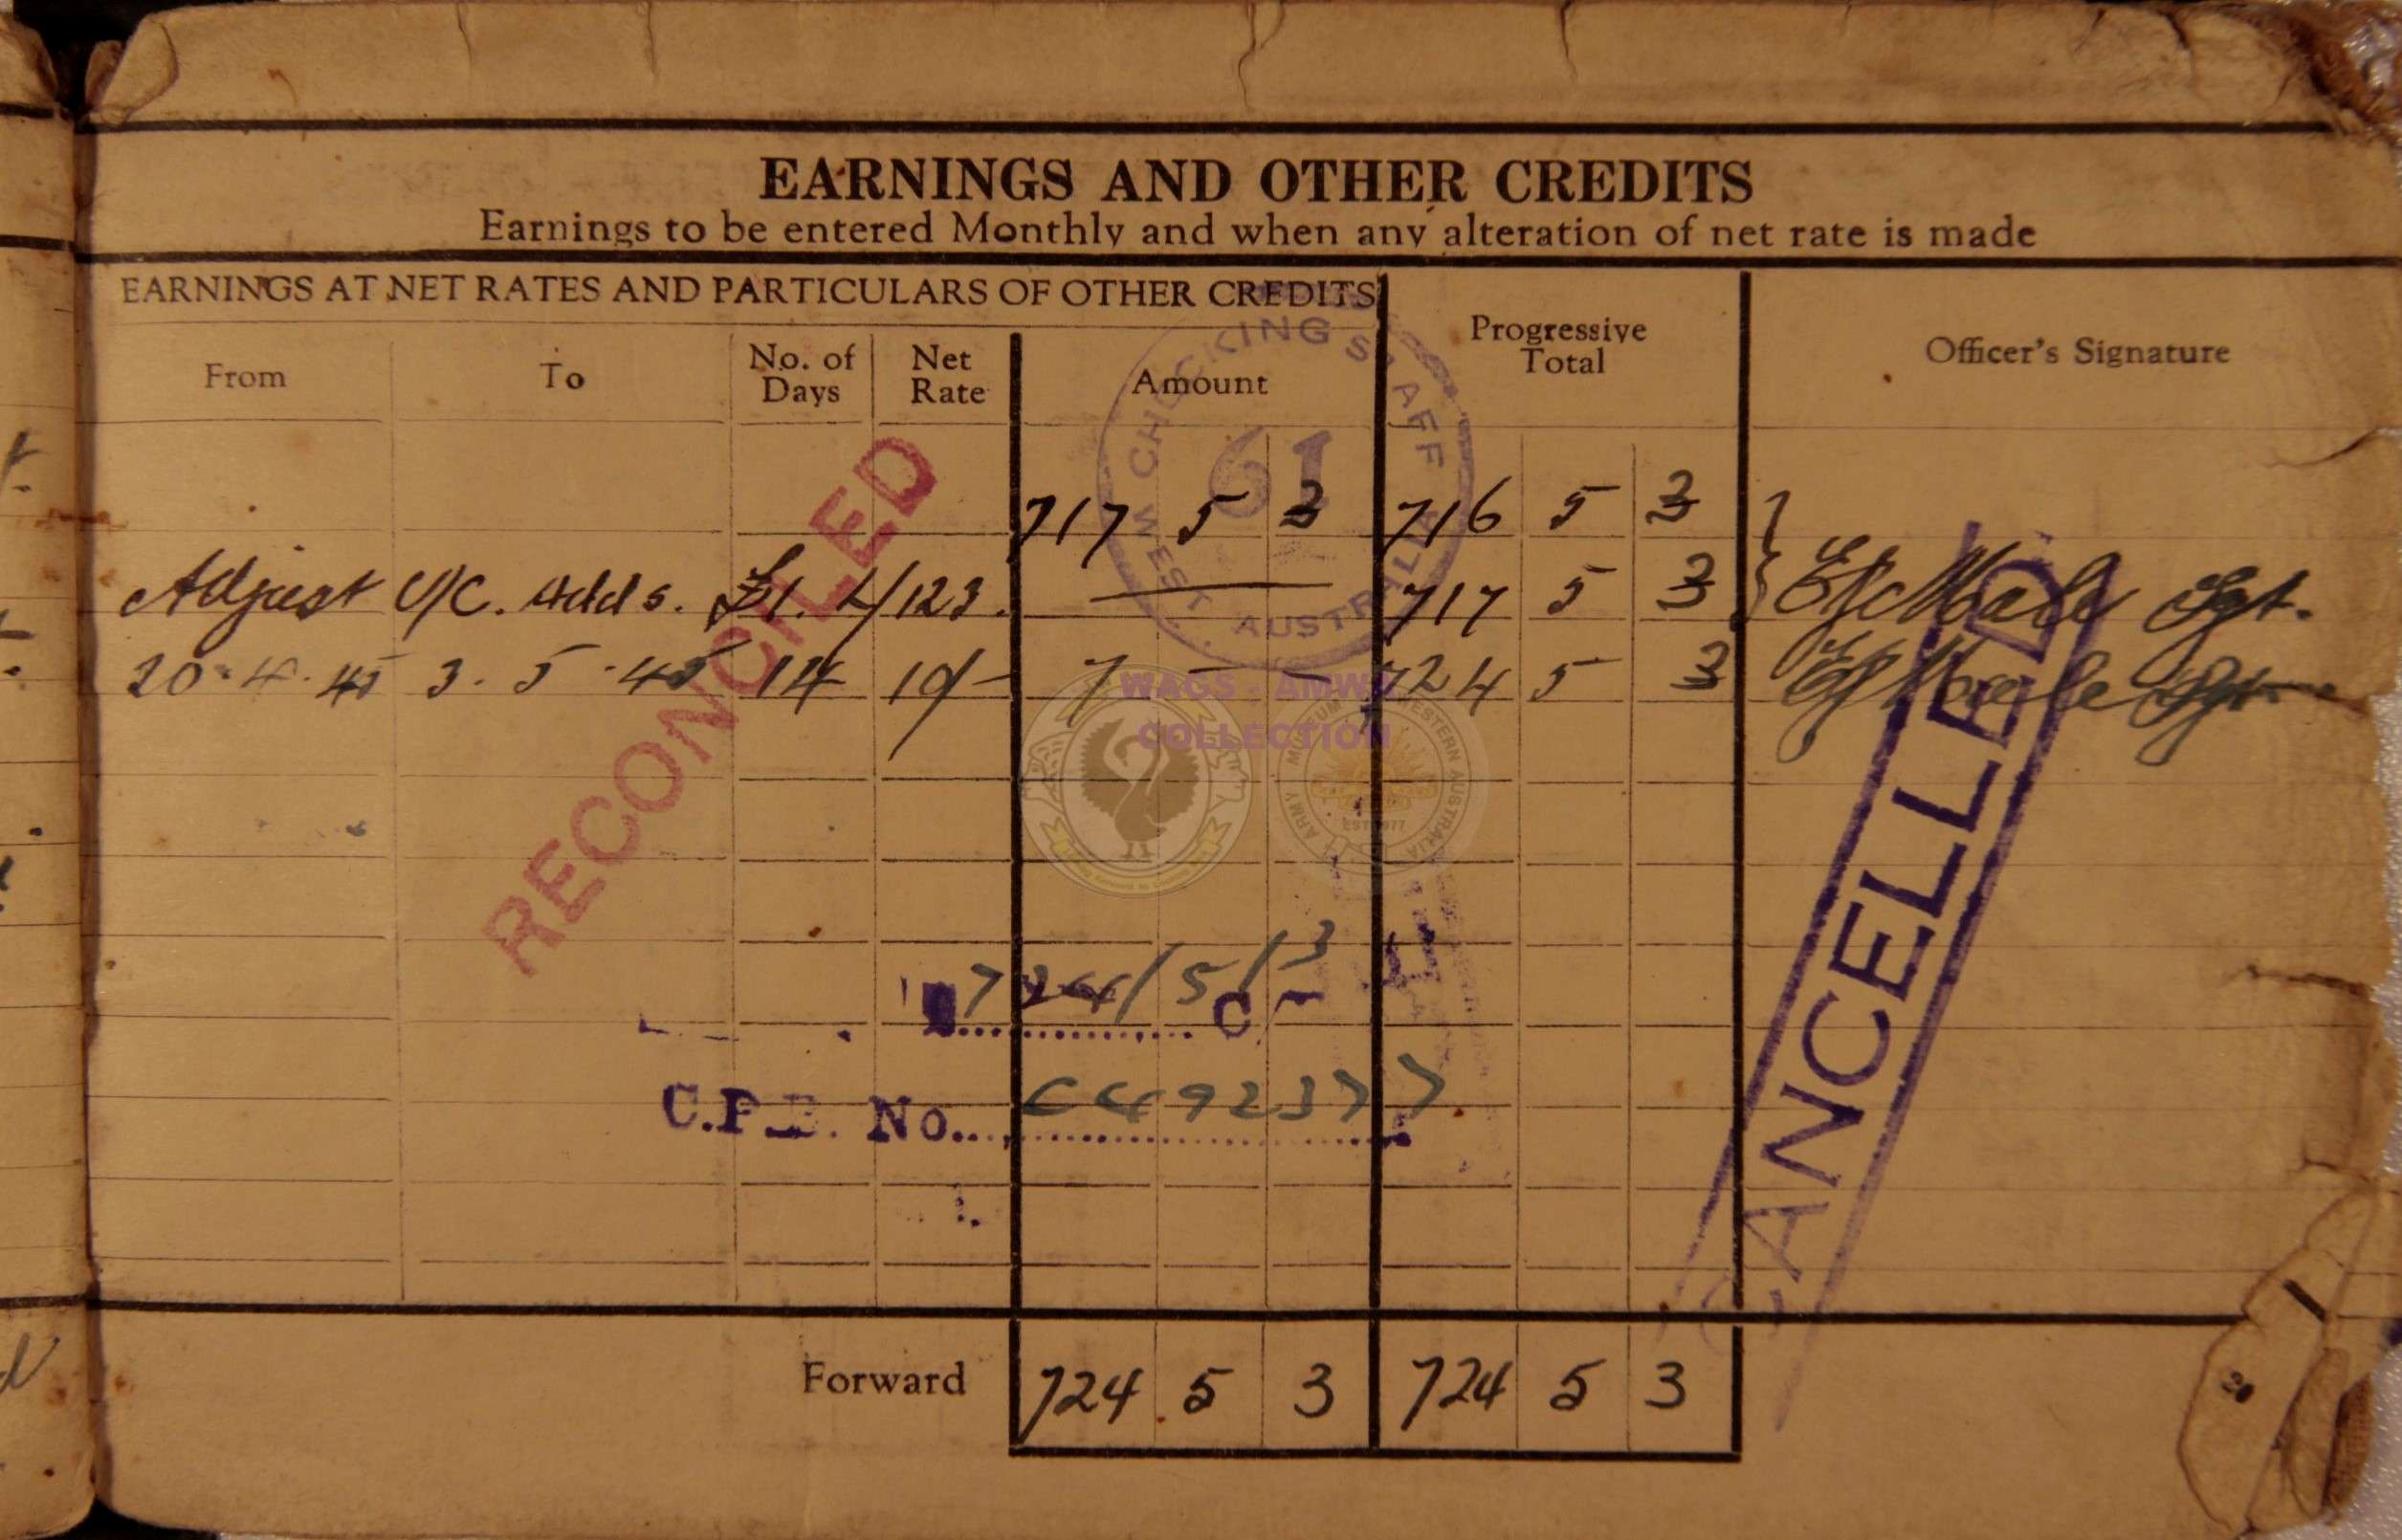 EARNINGS AND OTHER CREDITS
Earnings to be entered Monthly and when any alteration of net rate is made
EARNINGS AT NET RATES AND PARTICULARS OF OTHER CREDITS
From To No. of Days Net Rate Amount Progressive Total Officer's Signature
CHECKING STAFF
61
WEST. AUSTRALIA
717 5 3 716 5 3
Adjust U/C. Adds. £1. L/123. 717 5 3 Sgt.
20.4.45 3.5.45 14 10/- 7 - - 724 5 3 Sgt.
RECONCILED
WAGS - AMWA
COLLECTION
ARMY MUSEUM WESTERN AUSTRALIA
EST 1977
CANCELLED
724/5/3
C.P.B. No. C492377
Forward 724 5 3 724 5 3